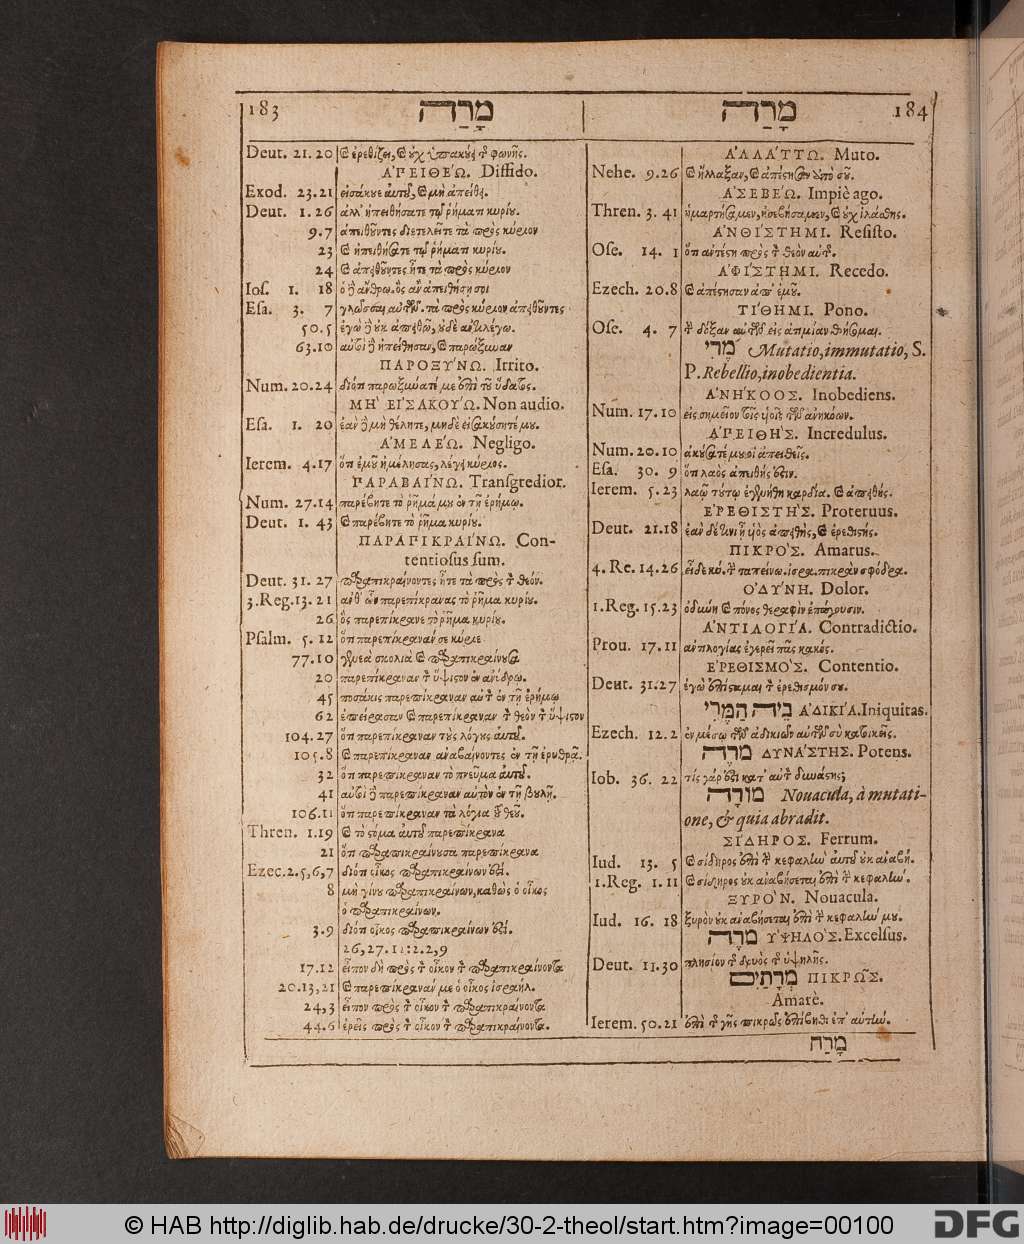 183 מָרָה
Deut. 21. 20 ἐρεθίζει, ὑπακούει φωνῆς.
ἈΠΕΙΘΕΏ. Diffido.
Exod. 23.21 εἰσάκουε αὐτοῦ, μὴ ἀπείθει.
Deut. 1. 26 ἀλλ' ἠπειθήσατε τῷ ῥήματι κυρίου.
9.7 ἀπειθοῦντες διετελεῖτε τὰ πρὸς κύριον
23 ἠπειθήσατε τῷ ῥήματι κυρίου.
24 ἀπειθοῦντες ἦτε τὰ πρὸς κύριον
Ios. 1. 18
Esa. 3. 7 γλῶσσαι αὐτῶν. τὰ πρὸς κύριον ἀπειθοῦντες
50.5 ἐγὼ οὐκ ἀπειθῶ, οὐδὲ ἀντιλέγω.
63.10 αὐτοὶ ἠπείθησαν, παρώξυναν
ΠΑΡΟΞΎΝΩ. Irrito.
Num. 20.24 διότι παρωξύνατέ με ἐπὶ τοῦ ὕδατος.
ΜΗ' ΕἸΣΑΚΟΎΩ. Non audio.
Esa. 1. 20 ἐὰν μὴ θέλητε, μηδὲ εἰσακούσητέ μου.
ἈΜΕΛΕΏ. Negligo.
Ierem. 4.17 ὅτι ἐμοῦ ἠμέλησας, λέγει κύριος.
ΠΑΡΑΒΑΊΝΩ. Transgredior.
Num. 27.14 παρέβητε τὸ ῥῆμά μου ἐν τῇ ἐρήμῳ.
Deut. 1. 43 παρέβητε τὸ ῥῆμα κυρίου.
ΠΑΡΑΠΙΚΡΑΊΝΩ. Con-
tentiosus sum.
Deut. 31. 27 παραπικραίνοντες ἦτε τὰ πρὸς τὸν θεόν.
3.Reg.13. 21 ἀνθ' ὧν παρεπίκρανας τὸ ῥῆμα κυρίου.
26 ὃς παρεπίκρανε τὸ ῥῆμα κυρίου.
Psalm. 5. 12 ὅτι παρεπίκρανάν σε κύριε
77.10 γενεὰ σκολιὰ παραπικραίνουσα
20 παρεπίκραναν τὸν ὕψιστον ἐν ἀνύδρῳ.
45 ποσάκις παρεπίκραναν αὐτὸν ἐν τῇ ἐρήμῳ
62 ἐπείρασαν παρεπίκραναν τὸν θεὸν τὸν ὕψιστον
104.27 ὅτι παρεπίκραναν τοὺς λόγους αὐτοῦ.
105.8 παρεπίκραναν ἀναβαίνοντες ἐν τῇ ἐρυθρᾷ.
32 ὅτι παρεπίκραναν τὸ πνεῦμα αὐτοῦ.
41 αὐτοὶ παρεπίκραναν αὐτὸν ἐν τῇ βουλῇ.
106.11 ὅτι παρεπίκραναν τὰ λόγια τοῦ θεοῦ.
Thren. 1.19 τὸ στόμα αὐτοῦ παρεπίκρανα
21 ὅτι παραπικραίνουσα παρεπίκρανα
Ezec.2.5,6,7 διότι οἶκος παραπικραίνων ἐστί.
8 μὴ γίνου παραπικραίνων, καθὼς ὁ οἶκος
ὁ παραπικραίνων.
3.9 διότι οἶκος παραπικραίνων ἐστί.
26,27.11:2.2,9
17.12 εἶπον δὴ πρὸς τὸν οἶκον τὸν παραπικραίνοντα
20.13,21 παρεπίκρανάν με ὁ οἶκος ἰσραήλ.
24,3 εἶπον πρὸς τὸν οἶκον τὸν παραπικραίνοντα
44.6 ἐρεῖς πρὸς τὸν οἶκον τὸν παραπικραίνοντα.
מָרָה 184
ἈΛΛΆΤΤΩ. Muto.
Nehe. 9.26 ἤλλαξαν, ἀπέστησαν ἀπὸ σοῦ.
ἈΣΕΒΕΏ. Impiè ago.
Thren. 3. 41 ἡμαρτήσαμεν, ἠσεβήσαμεν, οὐχ ἱλάσθης.
ἈΝΘΊΣΤΗΜΙ. Resisto.
Ose. 14. 1 ὅτι ἀντέστη πρὸς τὸν θεὸν αὐτῆς.
ἈΦΊΣΤΗΜΙ. Recedo.
Ezech. 20.8 ἀπέστησαν ἀπ' ἐμοῦ.
ΤΊΘΗΜΙ. Pono.
Ose. 4. 7 τὴν δόξαν αὐτῶν εἰς ἀτιμίαν θήσομαι.
מְרִי Mutatio, immutatio, S.
P. Rebellio, inobedientia.
ἈΝΉΚΟΟΣ. Inobediens.
Num. 17.10 εἰς σημεῖον τοῖς υἱοῖς τῶν ἀνηκόων.
ἈΠΕΙΘΗ'Σ. Incredulus.
Num. 20.10 ἀκούσατέ μου οἱ ἀπειθεῖς.
Esa. 30. 9 ὅτι λαὸς ἀπειθής ἐστιν.
Ierem. 5.23 λαῷ τούτῳ ἐγενήθη καρδία. ἀπειθής.
ἘΡΕΘΙΣΤΗ'Σ. Proteruus.
Deut. 21.18 ἐὰν δέ τινι ᾖ υἱὸς ἀπειθὴς, ἐρεθιστής.
ΠΙΚΡΟ'Σ. Amarus.
4. Re. 14.26 σφόδρα.
ὈΔΎΝΗ. Dolor.
1.Reg. 15.23 ὀδύνη πόνος θεραφὶν ἐπάγουσιν.
ἈΝΤΙΛΟΓΊΑ. Contradictio.
Prou. 17.11 ἀντιλογίας ἐγερεῖ πᾶς κακός.
ἘΡΕΘΙΣΜΟ'Σ. Contentio.
Deut. 31.27 ἐγὼ ἐπίσταμαι τὸν ἐρεθισμόν σου.
בֵּית הַמֶּרִי ἈΔΙΚΊΑ. Iniquitas.
Ezech. 12.2 ἐν μέσῳ τῶν ἀδικιῶν αὐτῶν σὺ κατοικεῖς.
מֹרֶה ΔΥΝΆΣΤΗΣ. Potens.
Iob. 36. 22 τίς γάρ ἐστι κατ' αὐτὸν δυνάστης;
מוֹרָה Nouacula, à mutati-
one, & quia abradit.
ΣΊΔΗΡΟΣ. Ferrum.
Iud. 13. 5 σίδηρος ἐπὶ τὴν κεφαλὴν αὐτοῦ οὐκ ἀναβῇ.
1.Reg. 1.11 σίδηρος οὐκ ἀναβήσεται ἐπὶ τὴν κεφαλήν.
ΞΥΡΟ'Ν. Nouacula.
Iud. 16. 18 ξυρὸν οὐκ ἀναβήσεται ἐπὶ τὴν κεφαλήν μου.
מֹרֶה ὙΨΗΛΟ'Σ. Excelsus.
Deut. 11.30 πλησίον τῆς δρυὸς τῆς ὑψηλῆς.
מְרָתַיִם ΠΙΚΡΩ͂Σ.
Amarè.
Ierem. 50.21 ἐπὶ τῆς γῆς πικρῶς ἐπίβηθι ἐπ' αὐτήν.
מָרַח
© HAB http://diglib.hab.de/drucke/30-2-theol/start.htm?image=00100
DFG